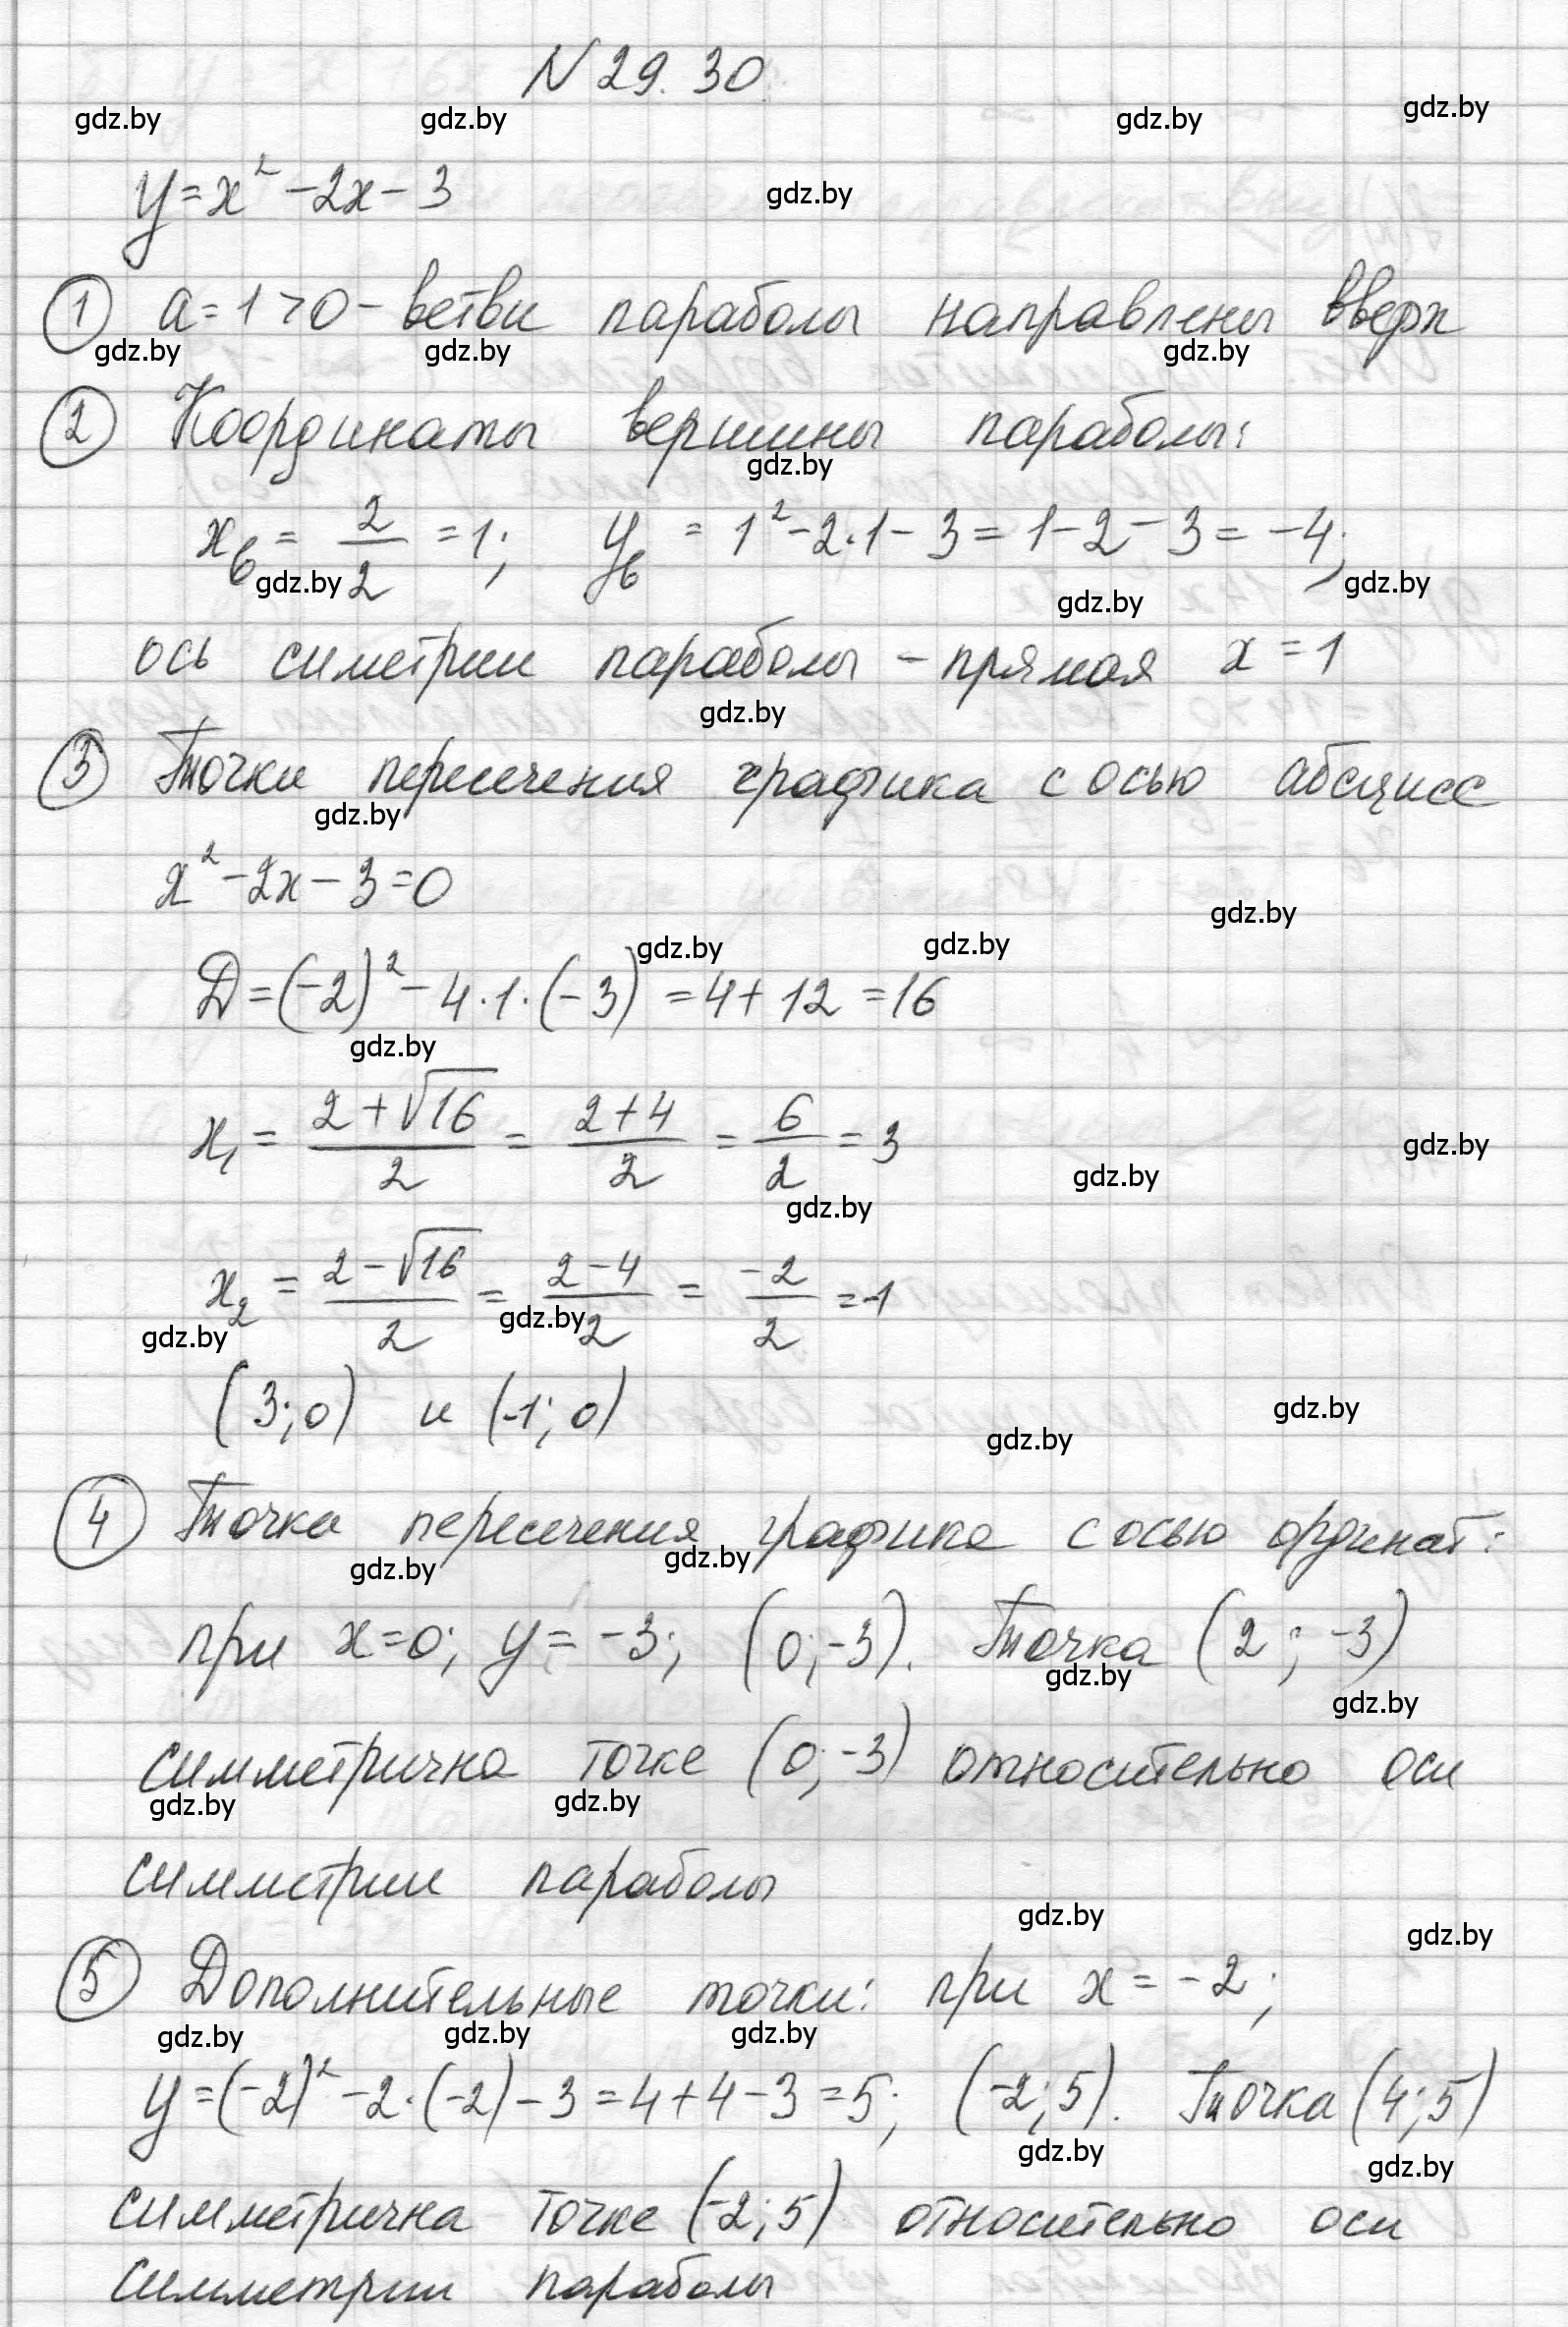 N 29.30
gdz.by gdz.by gdz.by gdz.by
y=x²-2x-3 gdz.by
① a=1>0 - ветви параболы направлены вверх
gdz.by gdz.by gdz.by
② Координаты вершины параболы:
gdz.by
xв = 2/2 = 1; yв = 1²-2·1-3=1-2-3=-4;
gdz.by gdz.by gdz.by
ось симетрии параболы - прямая x=1
gdz.by
③ Точки пересечения графика с осью абсцисс
gdz.by
x²-2x-3=0
gdz.by
gdz.by gdz.by
D=(-2)²-4·1·(-3)=4+12=16
gdz.by
x₁ = (2+√16)/2 = (2+4)/2 = 6/2 = 3
gdz.by gdz.by gdz.by
x₂ = (2-√16)/2 = (2-4)/2 = -2/2 = -1
gdz.by gdz.by
(3;0) и (-1;0)
gdz.by gdz.by
④ Точка пересечения графика с осью ординат:
gdz.by gdz.by
при x=0; y=-3; (0;-3). Точка (2;-3)
gdz.by gdz.by
симметрична точке (0;-3) относительно оси
gdz.by gdz.by
симметрии параболы
gdz.by gdz.by
⑤ Дополнительные точки: при x=-2;
gdz.by gdz.by gdz.by
y=(-2)²-2·(-2)-3=4+4-3=5; (-2;5). Точка (4;5)
gdz.by gdz.by
симметрична точке (-2;5) относительно оси
симметрии параболы